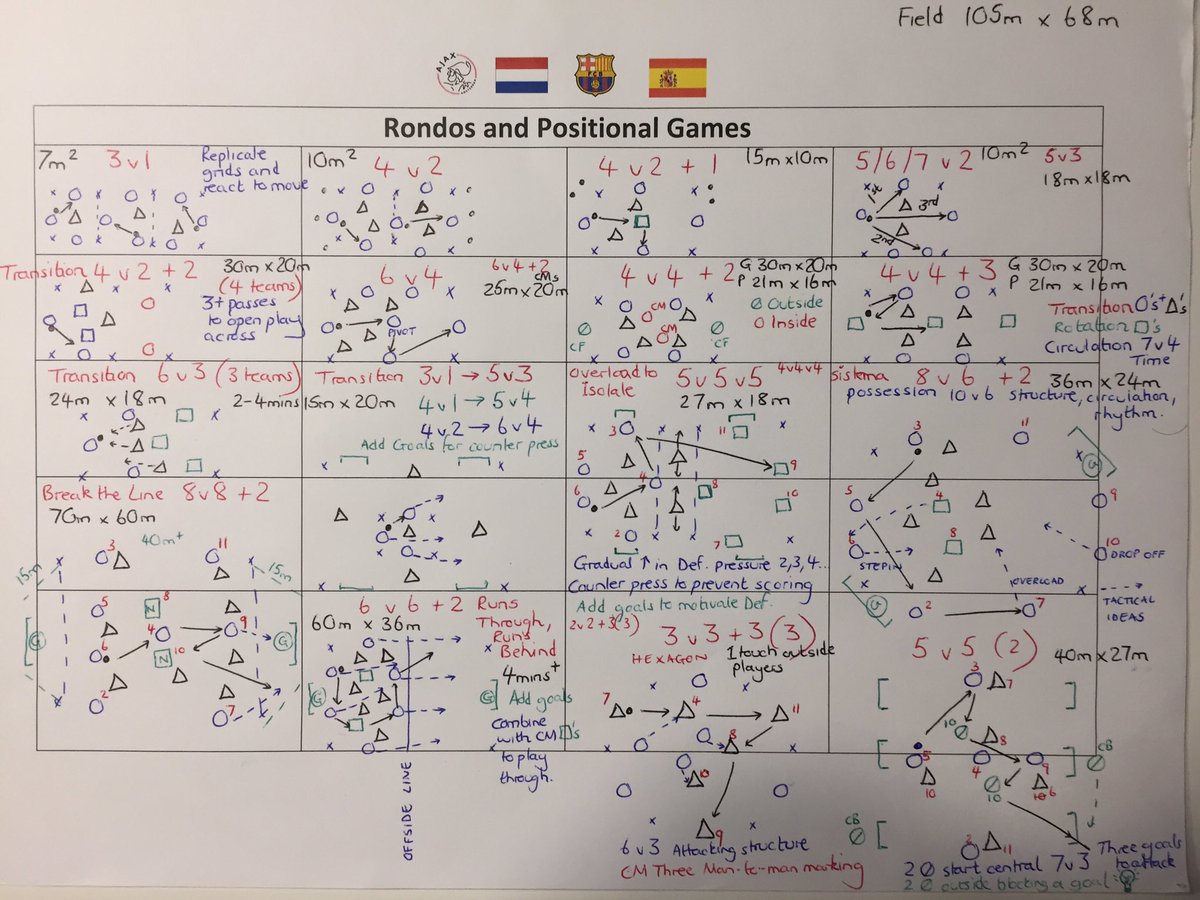 Field 105m x 68m
AJAX
FCB
Rondos and Positional Games
7m² 3v1
Replicate
grids and
react to move
10m² 4 v 2
4 v 2 + 1 15m x10m
5/6/7 v 2 10m² 5v3
18m x 18m
1st
3rd
2nd
Transition 4 v 2 + 2 30m x 20m
(4 teams)
3+ passes
to open play
across
6 v 4 6v4+2
CMs
25m x 20m
PIVOT
4 v 4 + 2 G 30m x 20m
P 21m x 16m
Ø Outside
O Inside
CM
CM
CF
CF
4 v 4 + 3 G 30m x 20m
P 21m x 16m
Transition O's + Δ's
Rotation □'s
Circulation 7v4
Time
Transition 6 v 3 (3 teams)
24m x 18m 2-4mins
Transition 3v1 → 5v3
15m x 20m 4v1 → 5v4
4v2 → 6v4
Add Goals for counter press
Overload to
Isolate 5 v 5 v 5 4v4v4
27m x 18m
3 11
5 4 9
6 8 10
2 7
Gradual ↑ in Def. pressure 2,3,4...
Counter press to prevent scoring
Add goals to motivate Def.
sistema 8 v 6 + 2 36m x 24m
possession 10 v 6 structure, circulation,
rhythm.
3 11
G
5 4 9
6 8 10
STEP IN
DROP OFF
OVERLOAD
G 2 7
TACTICAL
IDEAS
Break the Line 8v8 + 2
70m x 60m
40m+
3 11
15m 15m
5 N 8
G 4 9 G
6 N 10
2 7
6 v 6 + 2 Runs
60m x 36m Through,
Runs
Behind
4mins+
G
G Add goals
Combine
with CM □'s
to play
through.
OFFSIDE LINE
2v2+3(3)
3 v 3 + 3 (3)
HEXAGON 1 touch outside
players
7 4 11
8
10
9
6 v 3 Attacking structure
CM Three Man-to-man marking
5 v 5 (2) 40m x 27m
3 7
10 8
5 4 9 CB
10 10 6
CB
2 11
Three goals
to attack
2 Ø start central 7v3
2 Ø outside blocking a goal